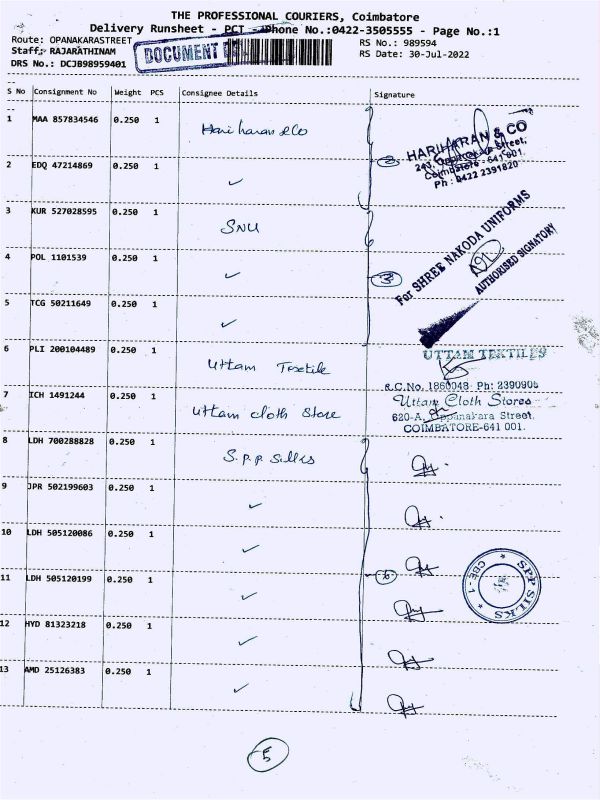 THE PROFESSIONAL COURIERS, Coimbatore
Delivery Runsheet - PCT - Phone No.:0422-3505555 - Page No.:1
Route: OPANAKARASTREET
RS No.: 989594
Staff: RAJARATHINAM
DOCUMENT
RS Date: 30-Jul-2022
DRS No.: DCJB98959401
S No Consignment No Weight PCS Consignee Details Signature
1 MAA 857834546 0.250 1 Hariharan &Co
HARIHARAN & CO
243, Oppanakara Street,
Coimbatore - 641 001.
Ph : 0422 2391820
2 EDQ 47214869 0.250 1 ✓ 2
3 KUR 527028595 0.250 1 SNU
For SHREE NAKODA UNIFORMS
AUTHORISED SIGNATORY
4 POL 1101539 0.250 1 ✓ 3
5 TCG 50211649 0.250 1 ✓
6 PLI 200104489 0.250 1 Uttam Textile
UTTAM TEXTILES
R.C.No. 1860048 Ph: 2390905
7 ICH 1491244 0.250 1 Uttam cloth Store
Uttam Cloth Stores
620-A, Oppanakara Street,
COIMBATORE-641 001.
8 LDH 700288828 0.250 1 S.P.P Silks
9 JPR 502199603 0.250 1 ✓
10 LDH 505120086 0.250 1 ✓
11 LDH 505120199 0.250 1 ✓ 6
SPP SILKS
CBE-1
12 HYD 81323218 0.250 1 ✓
13 AMD 25126383 0.250 1 ✓
5